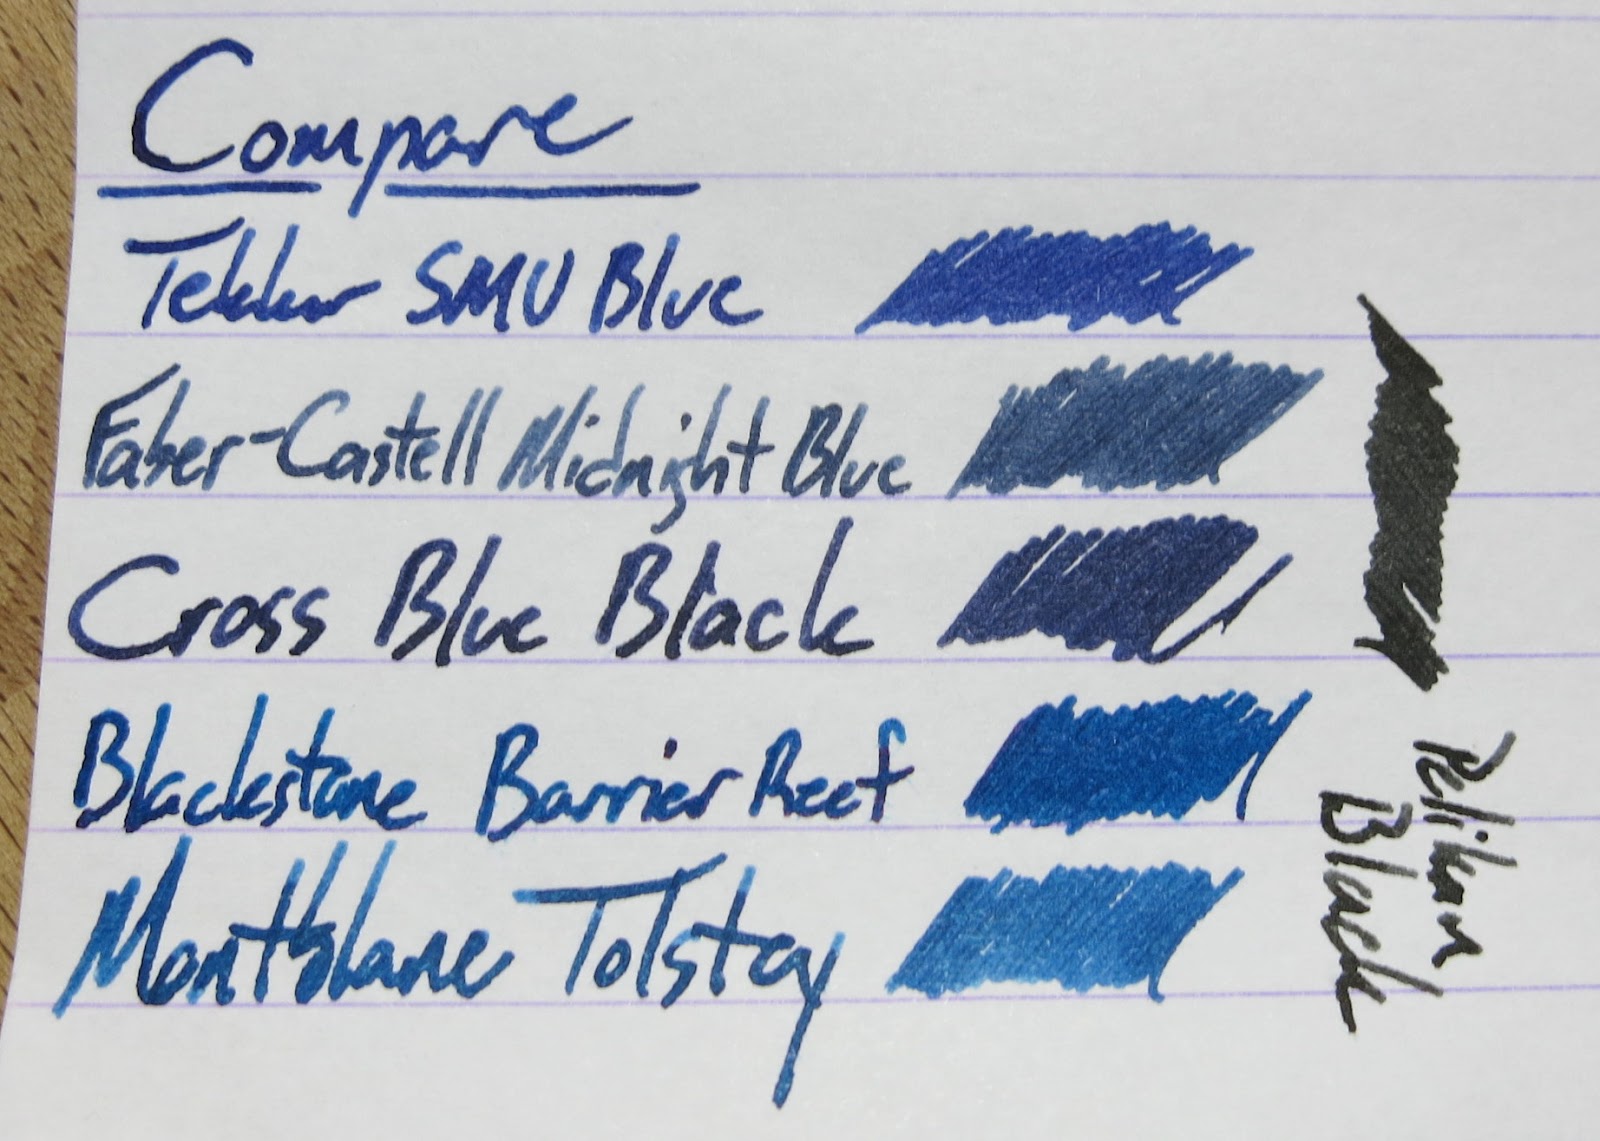 Compare
Tekker SMU Blue
Faber-Castell Midnight Blue
Cross Blue Black
Blackstone Barrier Reef
Montblanc Tolstoy
Pelikan
Black